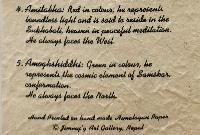 4. Amitabha: Red in colour, he represents
boundless light and is said to reside in the
Sukhabati, heaven in peaceful meditation.
He always faces the West.
5. Amoghshiddhi: Green in colour, he
represents the cosmic element of Sanskar,
conformation.
He always faces the North.
Hand Printed on hand made Himalayan Paper
© Jimmy's Art Gallery, Nepal